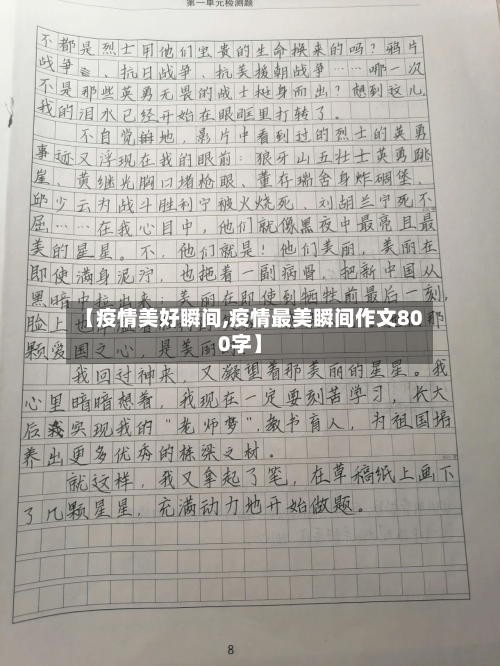 第一单元检测题
不都是烈士用他们宝贵的生命换来的吗？鸦片
战争、抗日战争、抗美援朝战争……哪一次
不是那些英勇无畏的战士挺身而出？想到这儿，
我的泪水已经开始在眼眶里打转了。
不自觉地，影片中看到过的烈士的英勇
事迹又浮现在我的眼前：狼牙山五壮士英勇跳
崖、黄继光胸口堵枪眼、董存瑞舍身炸碉堡、
邱少云为战斗胜利宁被火烧死、刘胡兰宁死不
屈……在我心目中，他们就像黑夜中最亮且最
美的星星。不，他们就是！他们美丽，美丽在
即使满身泥泞，也拖着一副病骨，把新中国从
黑暗中拉出来；美丽在即使到牺牲前最后一刻，
【疫情美好瞬间,疫情最美瞬间作文80
0字】
脸上也
那
颗爱国之心，是美丽的
我回过神来，又凝望着那美丽的星星。我
心里暗暗想着，我现在一定要刻苦学习，长大
后实现我的“老师梦”，教书育人，为祖国培
养出更多优秀的栋梁之材。
就这样，我又拿起了笔，在草稿纸上画下
了几颗星星，充满动力地开始做题。
8